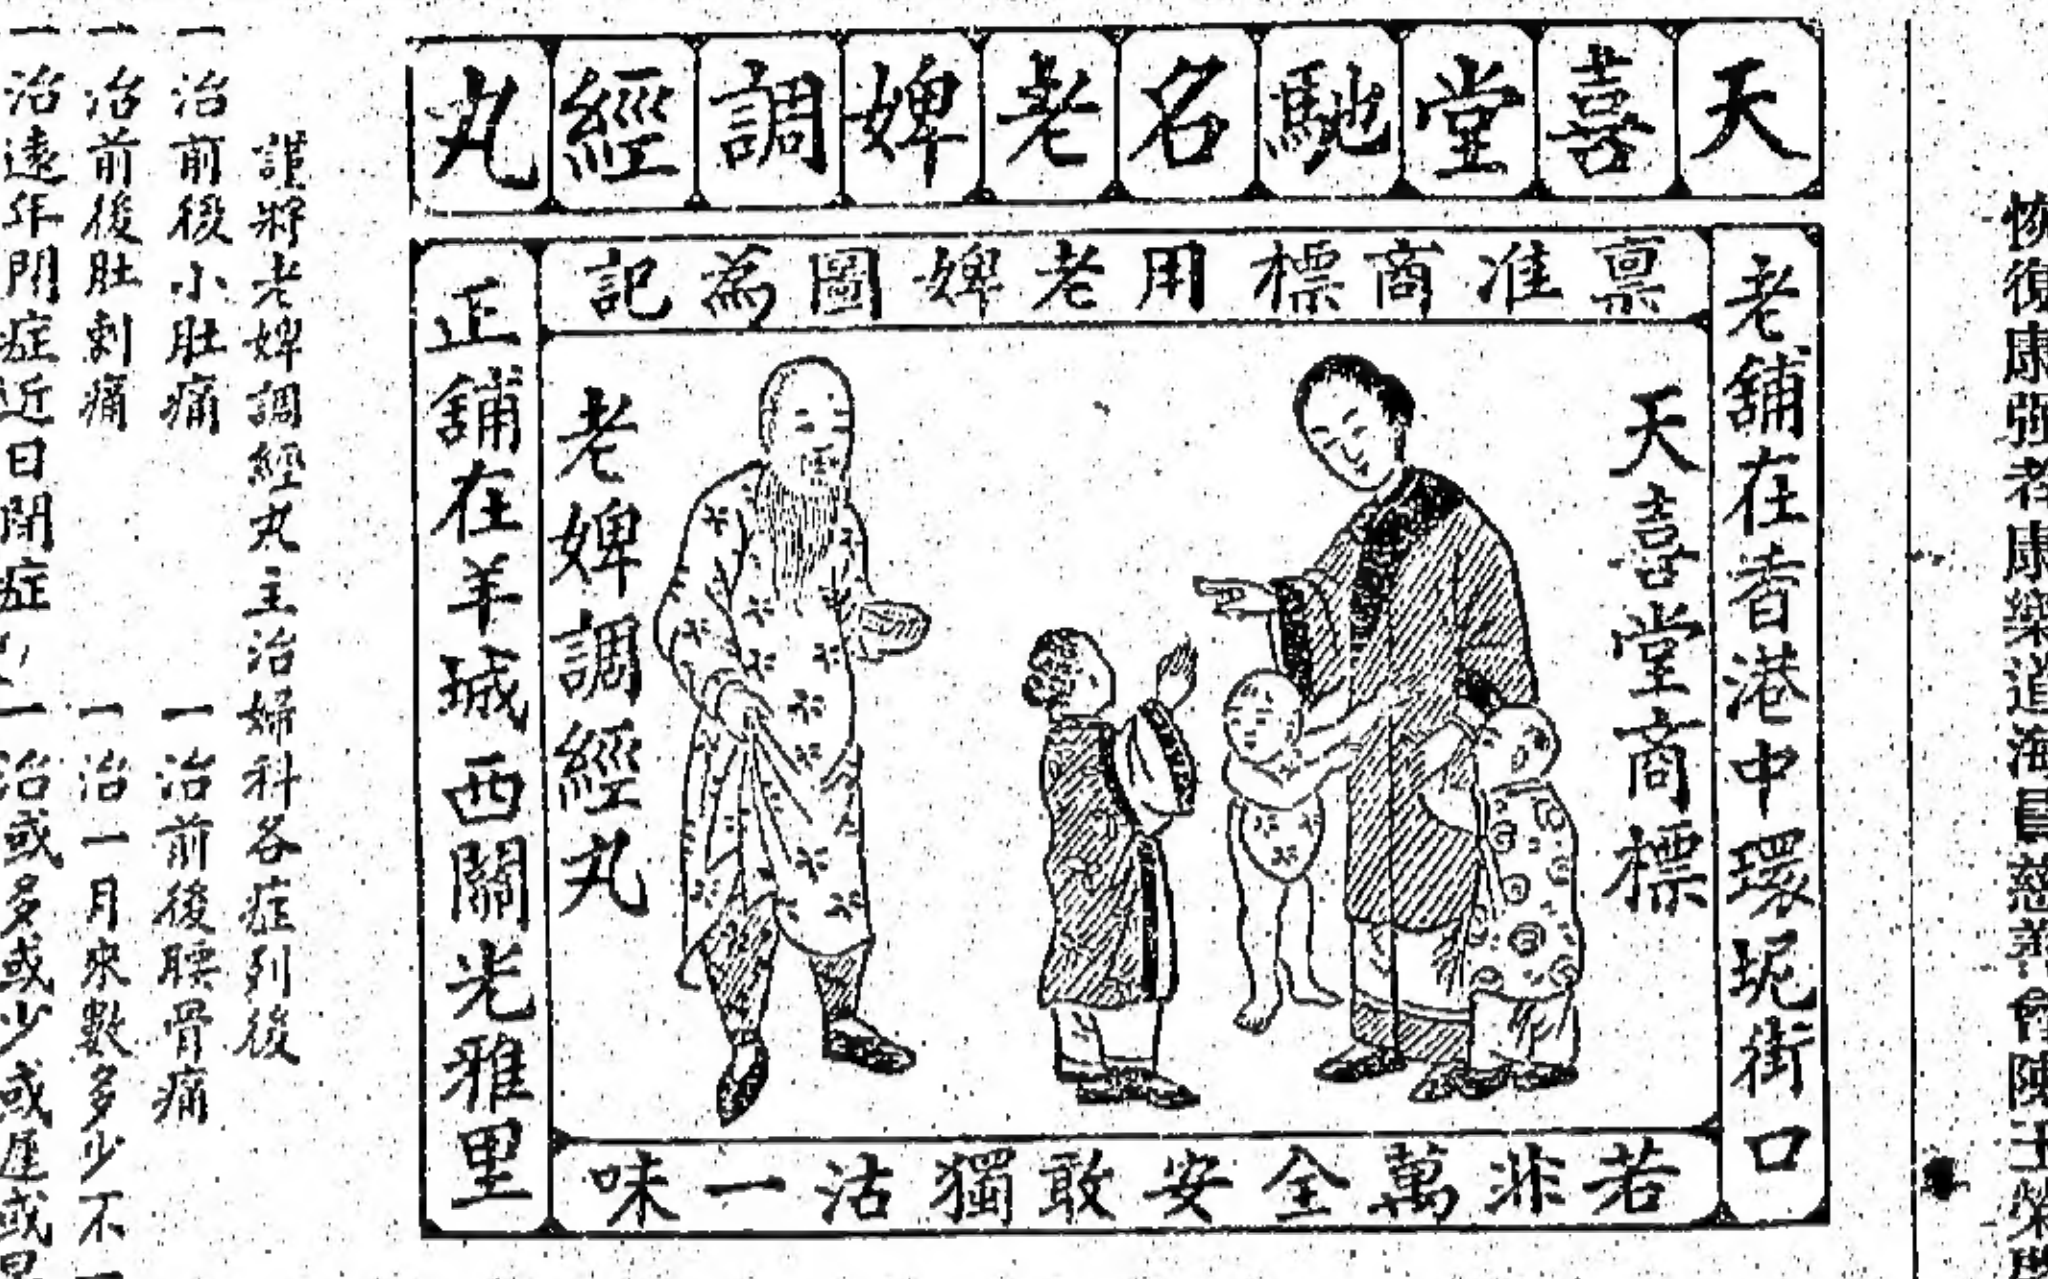 恢復康強者康樂道海
天喜堂馳名老婢調經丸
稟准商標用老婢圖為記
老舖在香港中環坭街口
天喜堂商標
老婢調經丸
正舖在羊城西關光雅里
若非萬全安敢獨沽一味
謹將老婢調經丸主治婦科各症列後
一治前後小肚痛
一治前後腰骨痛
一治前後肚刺痛
一治一月來數多少不
一治遠年閉症近日閉症
一治或多或少或遲或